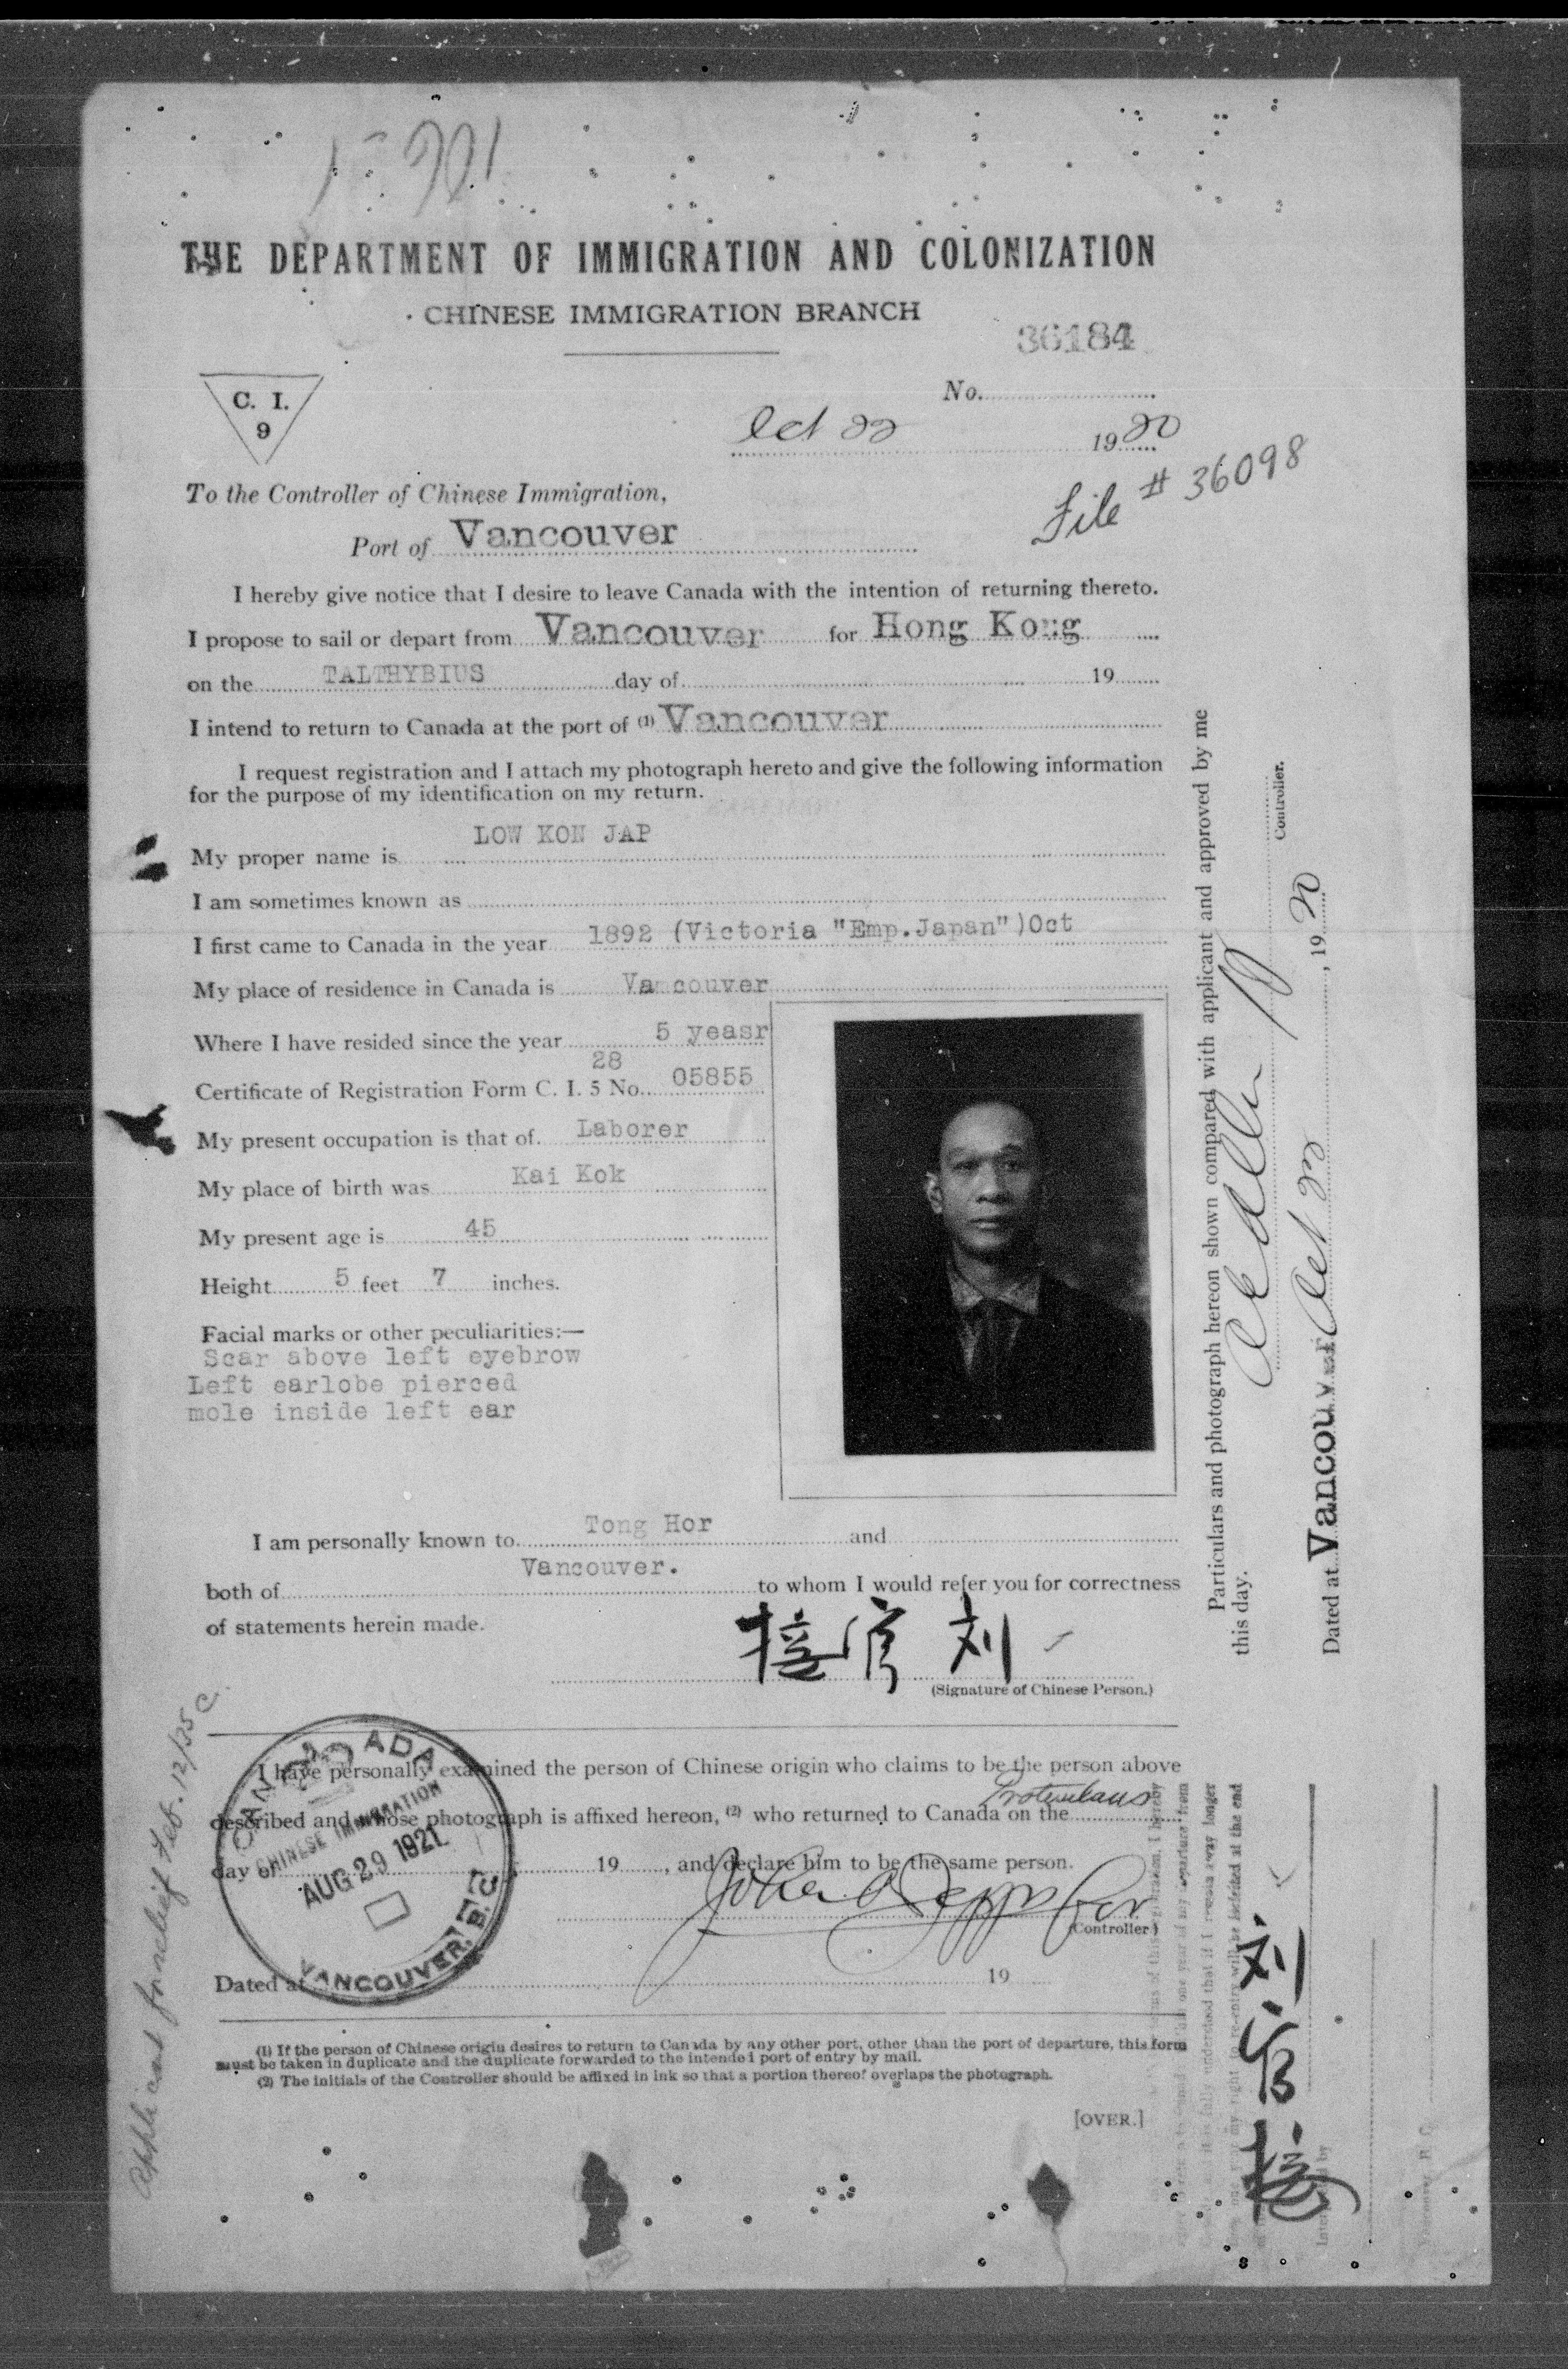 THE DEPARTMENT OF IMMIGRATION AND COLONIZATION
CHINESE IMMIGRATION BRANCH
36184
C. I.
9
No.
Oct 22 1920
File # 36098
To the Controller of Chinese Immigration,
Port of Vancouver
I hereby give notice that I desire to leave Canada with the intention of returning thereto.
I propose to sail or depart from Vancouver for Hong Kong
on the TALTHYBIUS day of 19
I intend to return to Canada at the port of (1) Vancouver
I request registration and I attach my photograph hereto and give the following information
for the purpose of my identification on my return.
My proper name is LOW KON JAP
I am sometimes known as
I first came to Canada in the year 1892 (Victoria "Emp.Japan")Oct
My place of residence in Canada is Vancouver
Where I have resided since the year 5 yeasr
28
Certificate of Registration Form C. I. 5 No. 05855
My present occupation is that of Laborer
My place of birth was Kai Kok
My present age is 45
Height 5 feet 7 inches.
Facial marks or other peculiarities:—
Scar above left eyebrow
Left earlobe pierced
mole inside left ear
I am personally known to Tong Hor and
both of Vancouver. to whom I would refer you for correctness
of statements herein made.
接官刘
(Signature of Chinese Person.)
I have personally examined the person of Chinese origin who claims to be the person above
described and whose photograph is affixed hereon, (2) who returned to Canada on the Protesilaus
day of 19, and declare him to be the same person.
(Controller)
Dated at 19
CANADA
CHINESE IMMIGRATION
AUG 29 1921
VANCOUVER, B.C.
(1) If the person of Chinese origin desires to return to Canada by any other port, other than the port of departure, this form
must be taken in duplicate and the duplicate forwarded to the intended port of entry by mail.
(2) The initials of the Controller should be affixed in ink so that a portion thereof overlaps the photograph.
[OVER.]
Applicant for relief Feb. 12/35
Particulars and photograph hereon shown compared with applicant and approved by me
this day.
Controller.
Dated at Vancouver Oct 22, 1920
刘官接